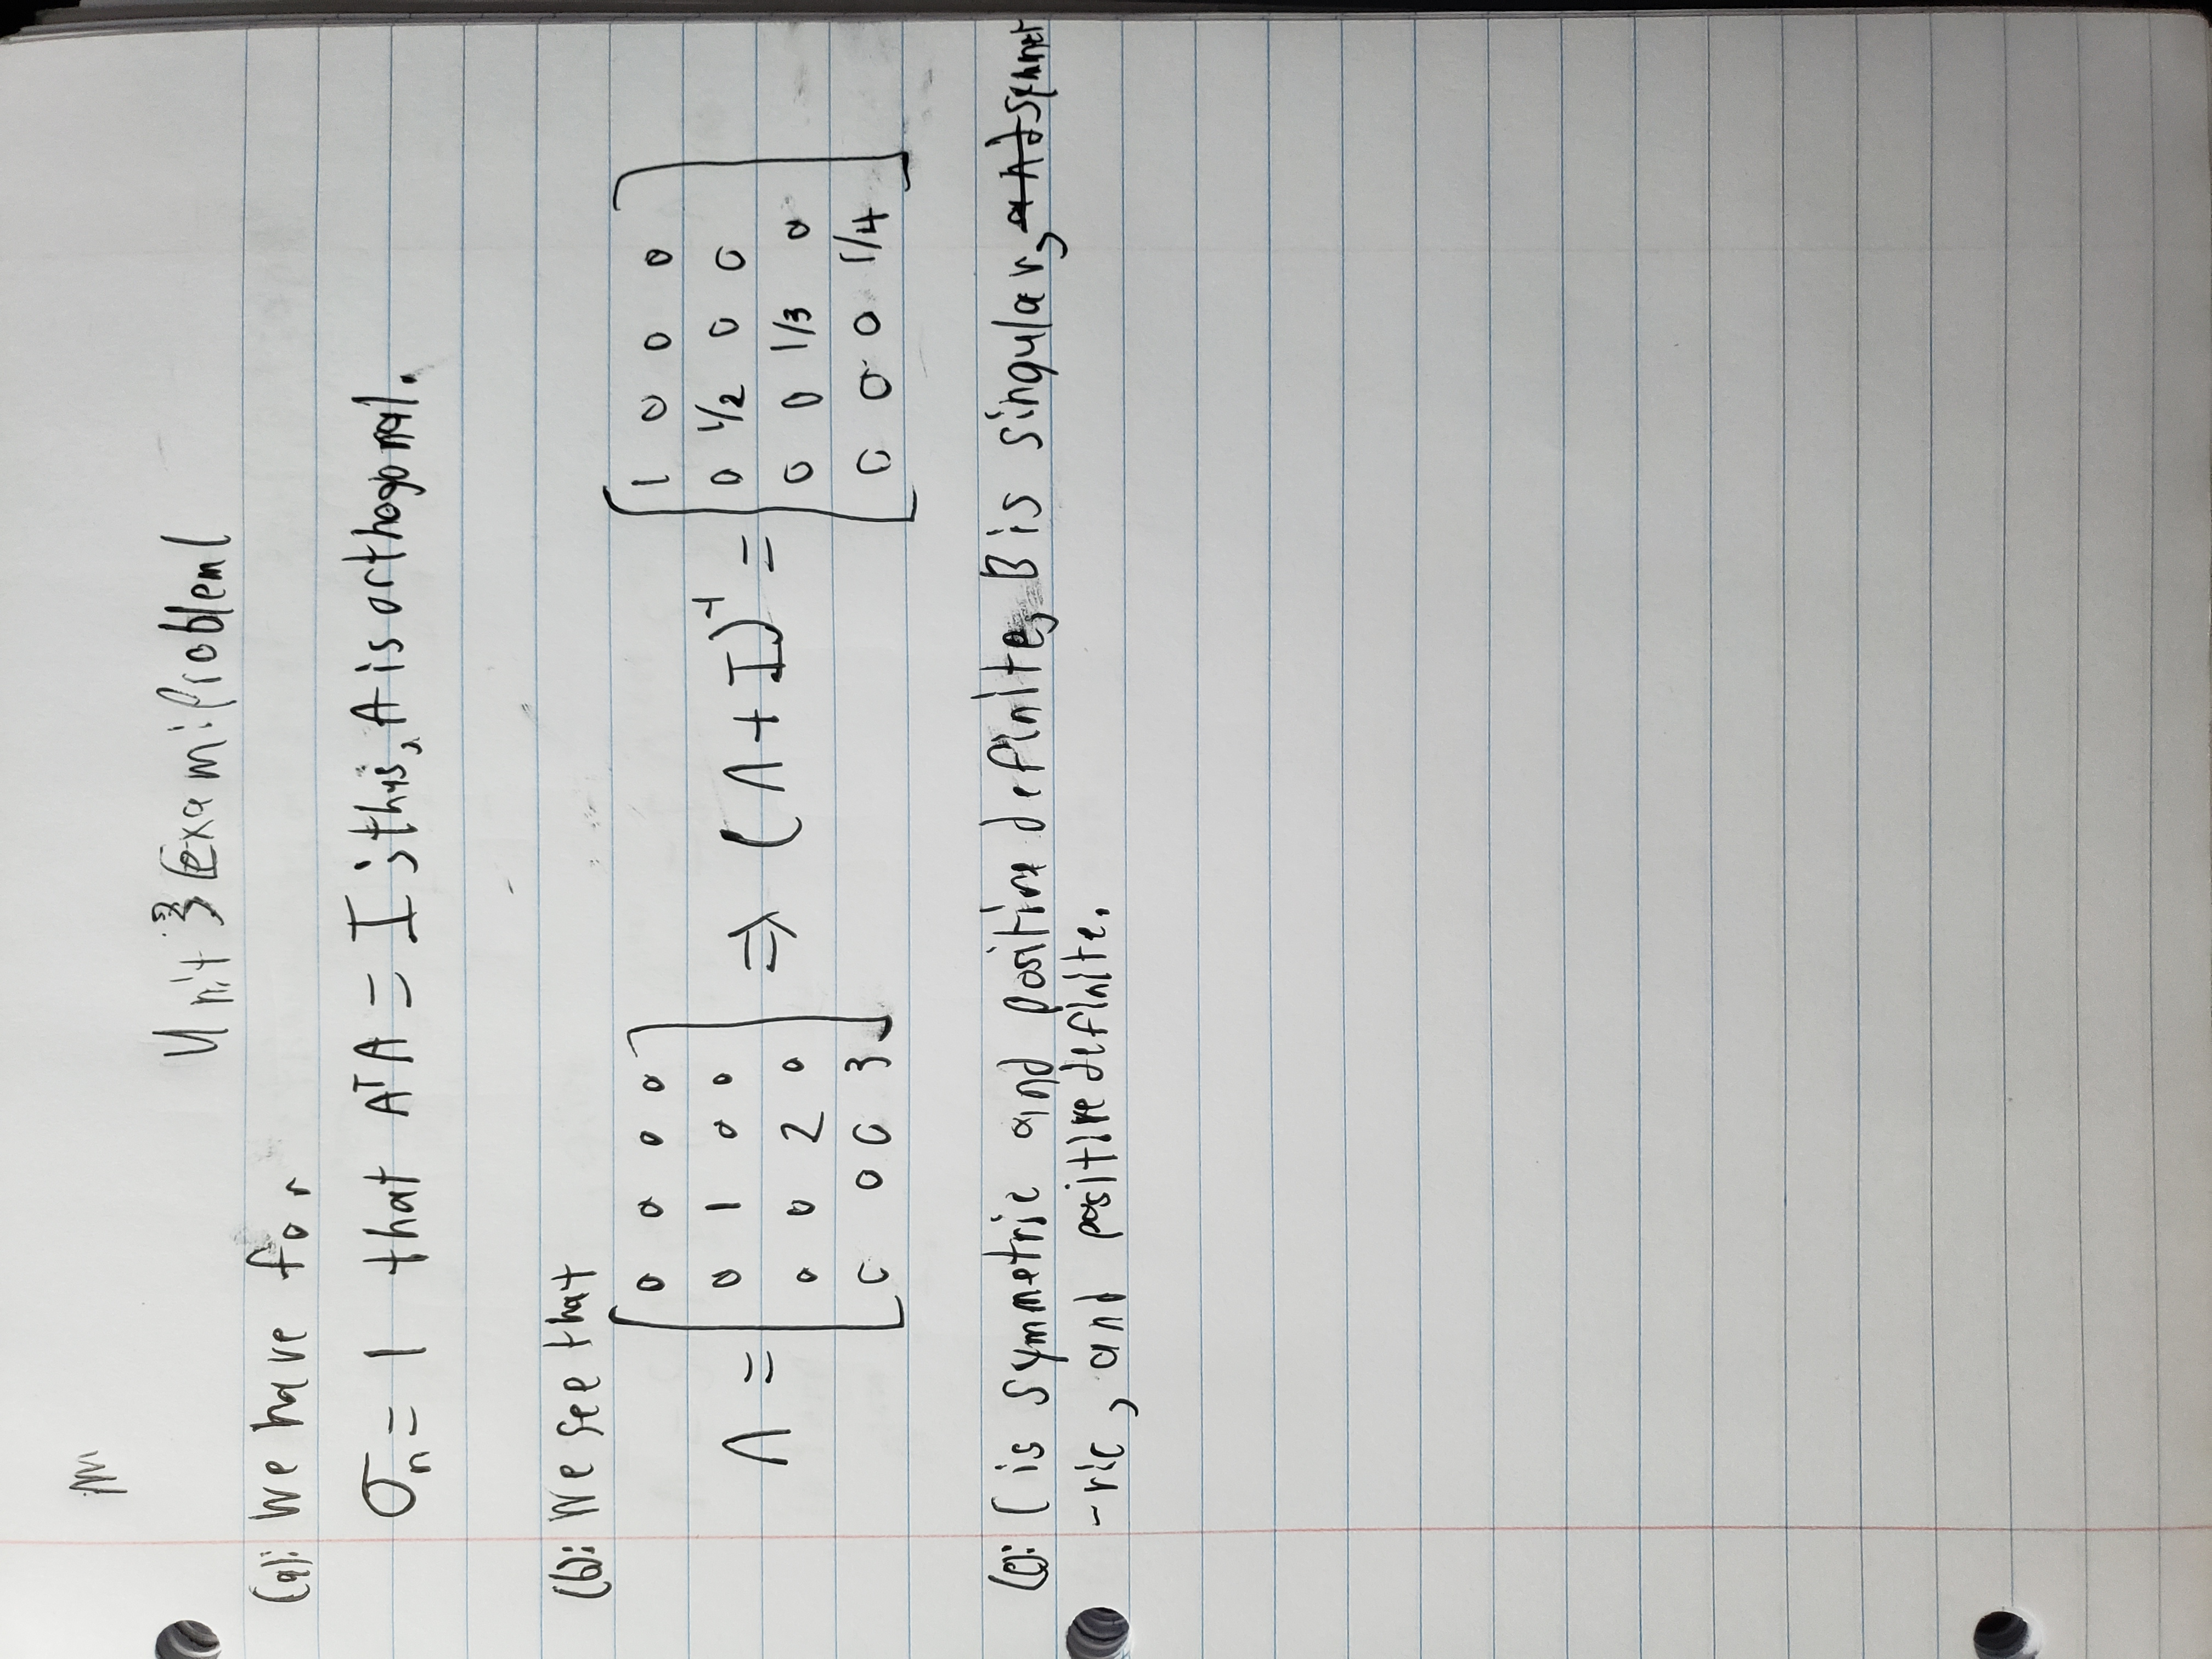 m
Unit 3 Exam: Problem 1
(a): We have for
σₙ = 1 that AᵀA = I ; thus, A is orthogonal.
(b): We see that
Λ = [0 0 0 0; 0 1 0 0; 0 0 2 0; 0 0 0 3] ⇒ (Λ + I)⁻¹ = [1 0 0 0; 0 1/2 0 0; 0 0 1/3 0; 0 0 0 1/4]
(c): C is symmetric and positive definite, B is singular, and symmet
-ric, and positive definite.